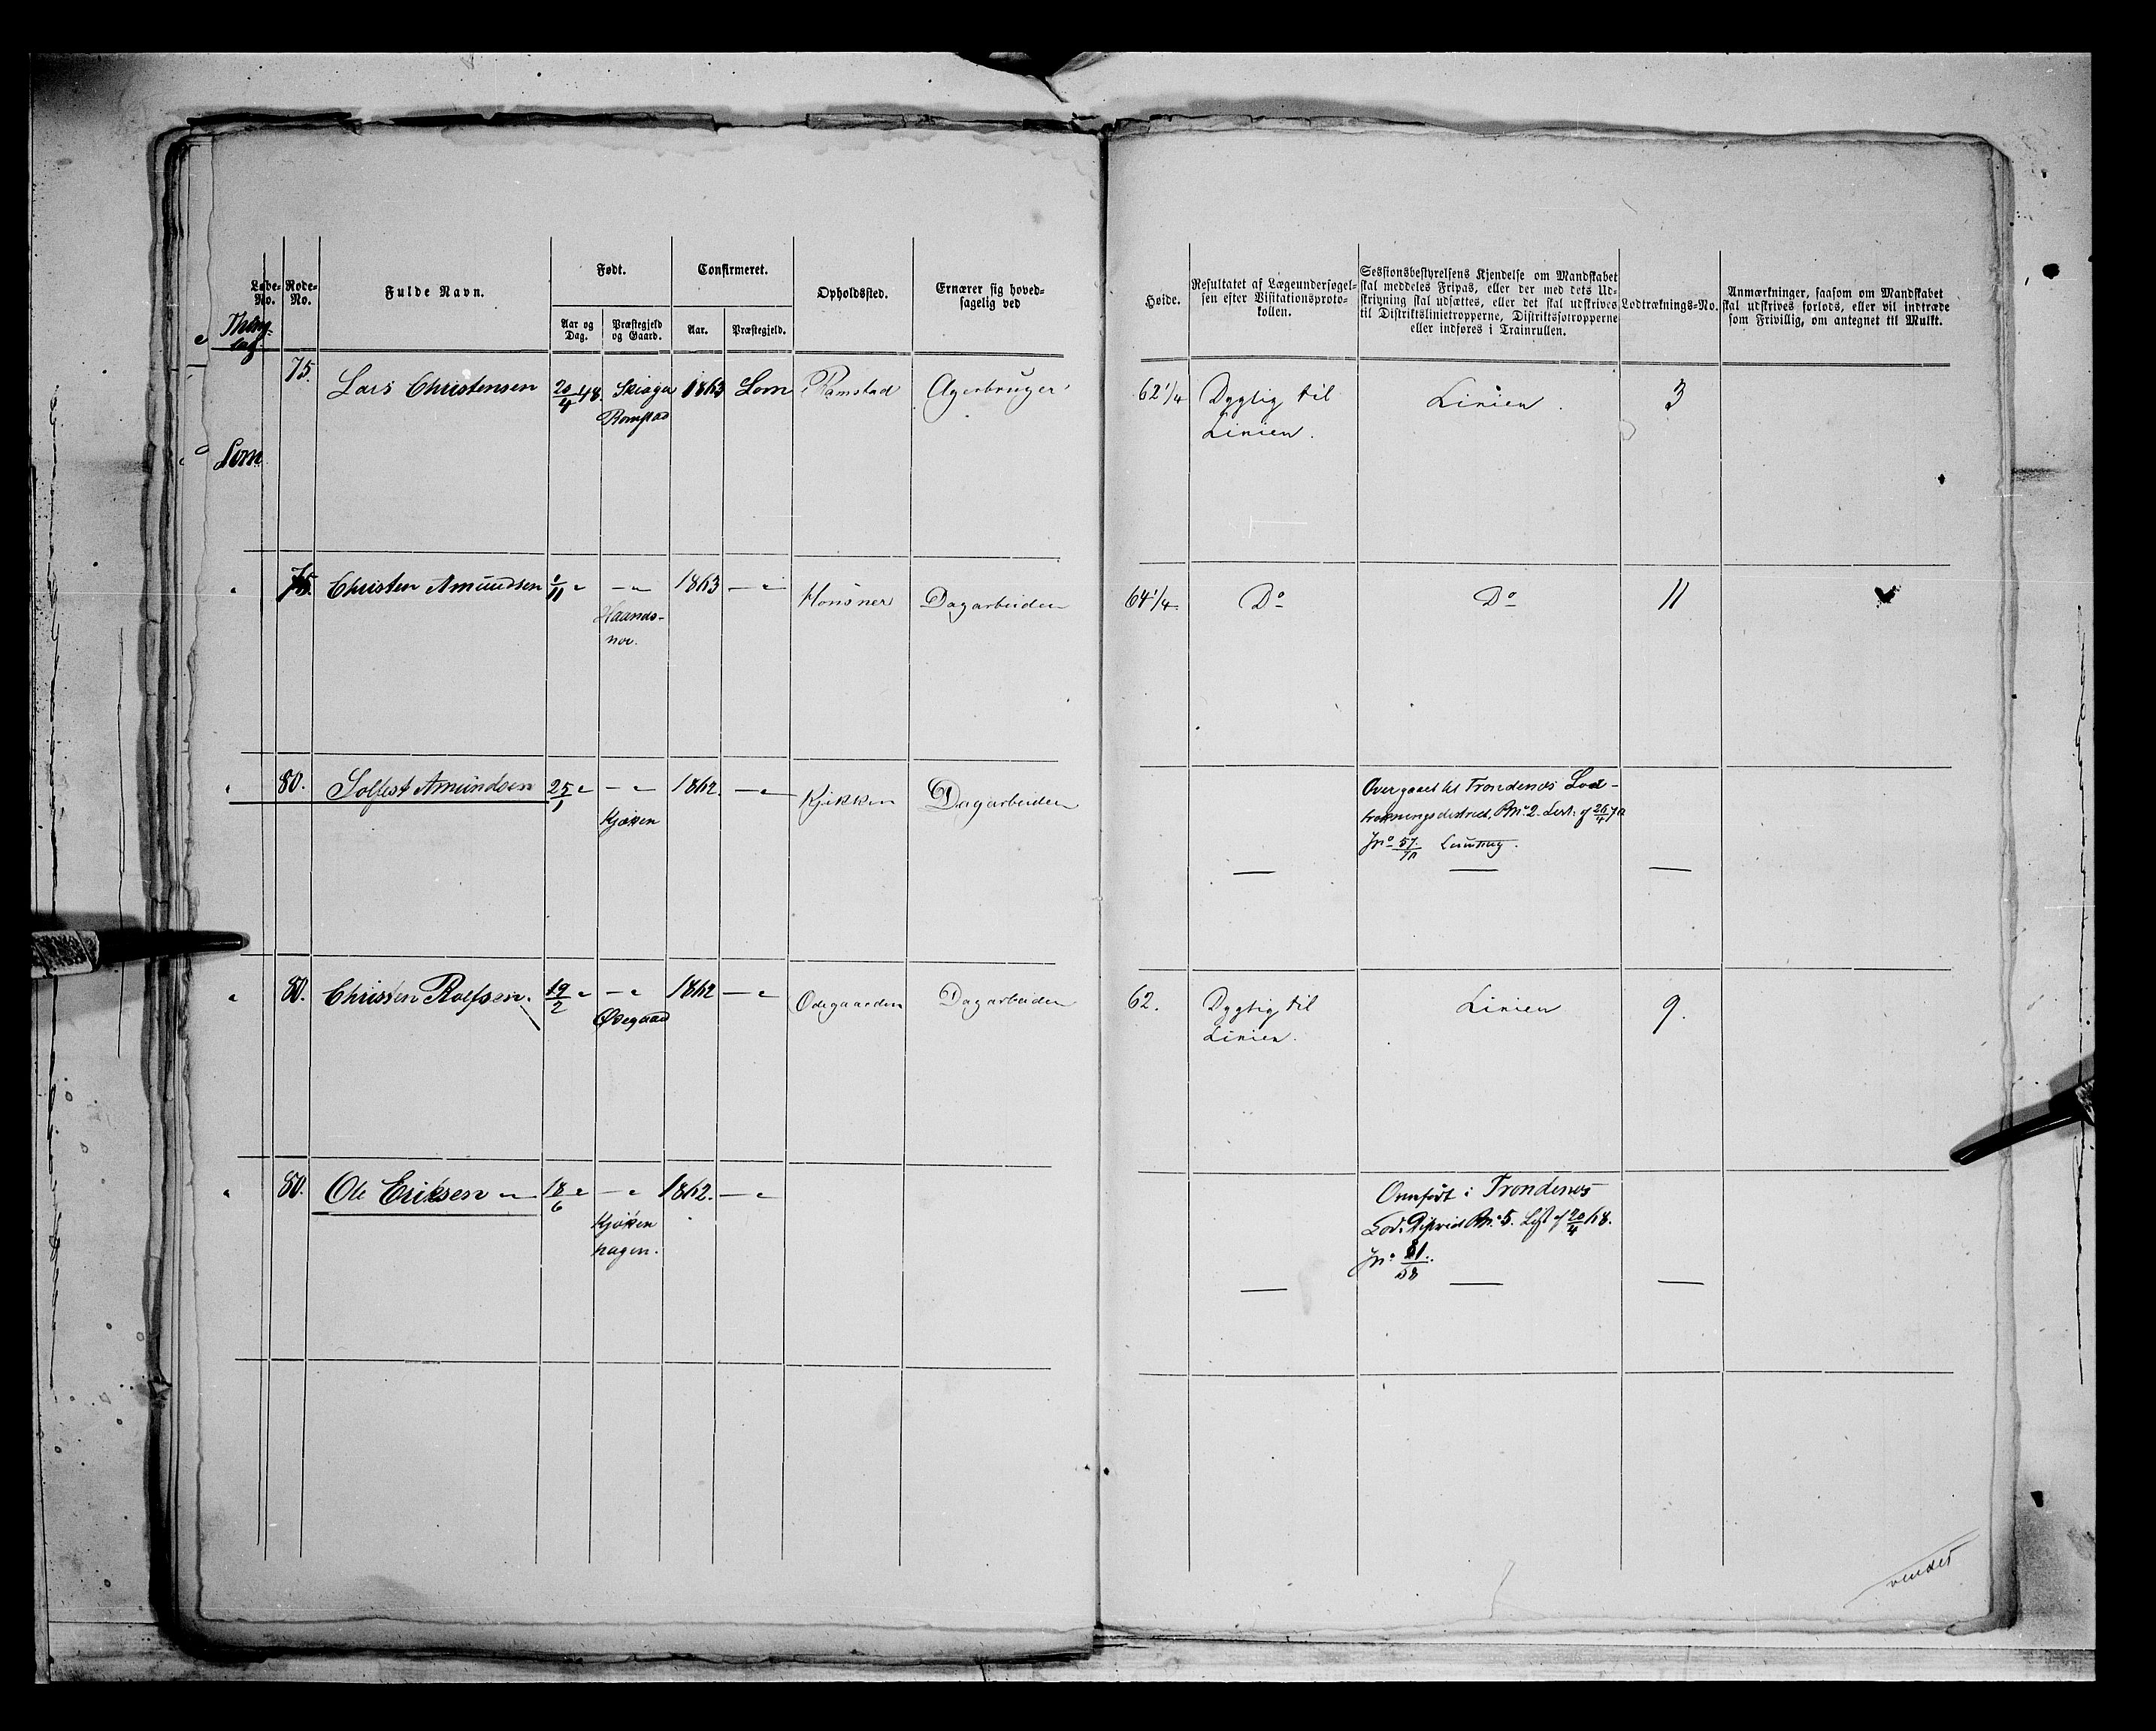 Løbe-No.
Rode-No.
Fulde Navn.
Født.
Aar og Dag.
Præstegjeld og Gaard.
Confirmeret.
Aar.
Præstegjeld.
Opholdssted.
Ernærer sig hoved-
sagelig ved
Høide.
Resultatet af Lægeundersøgel-
sen efter Visitationsproto-
kollen.
Sessionsbestyrelsens Kjendelse om Mandskabet
skal meddeles Fripas, eller der med dets Ud-
skrivning skal udsættes, eller det skal udskrives
til Distriktslinietropperne, Distriktsfotropperne
eller indføres i Trainrullen.
Lodtræknings-No.
Anmærkninger, saasom om Mandskabet
skal udskrives forlods, eller vil indtræde
som Frivillig, om antegnet til Mulkt.
Thing-
lag.
Lom
75. Lars Christensen 20/4 48 Skiager 1863 Lom Ramstad Agerbruger 62 1/4 Dygtig til Linien 3
Romstad Linien.
75. Christen Amundsen /11 " — " 1863 — " Honsner Dagarbeiden 64 1/4 Do Do 11
Haands-
nor.
80. Solfest Amundsen 25/1 " — " 1862. — " Kjøkken Dagarbeiden
Kjøkken
Overgaaet til Trondenæs Lod-
trækningsdistrict, Rno 2. 26/4 70
Jno 57/70
80. Christen Rolfsen. 19/2 " — " 1862 — " Ødegaarden Dagarbeiden 62. Dygtig til Linien 9.
Ødegaard Linien.
80. Ole Eriksen 18/6 " — " 1862. — "
Kjøkken
hagen.
Omført i Trondenæs
Lod. District Rno 5. List af 20/4 68.
Jno 81/58
vendes